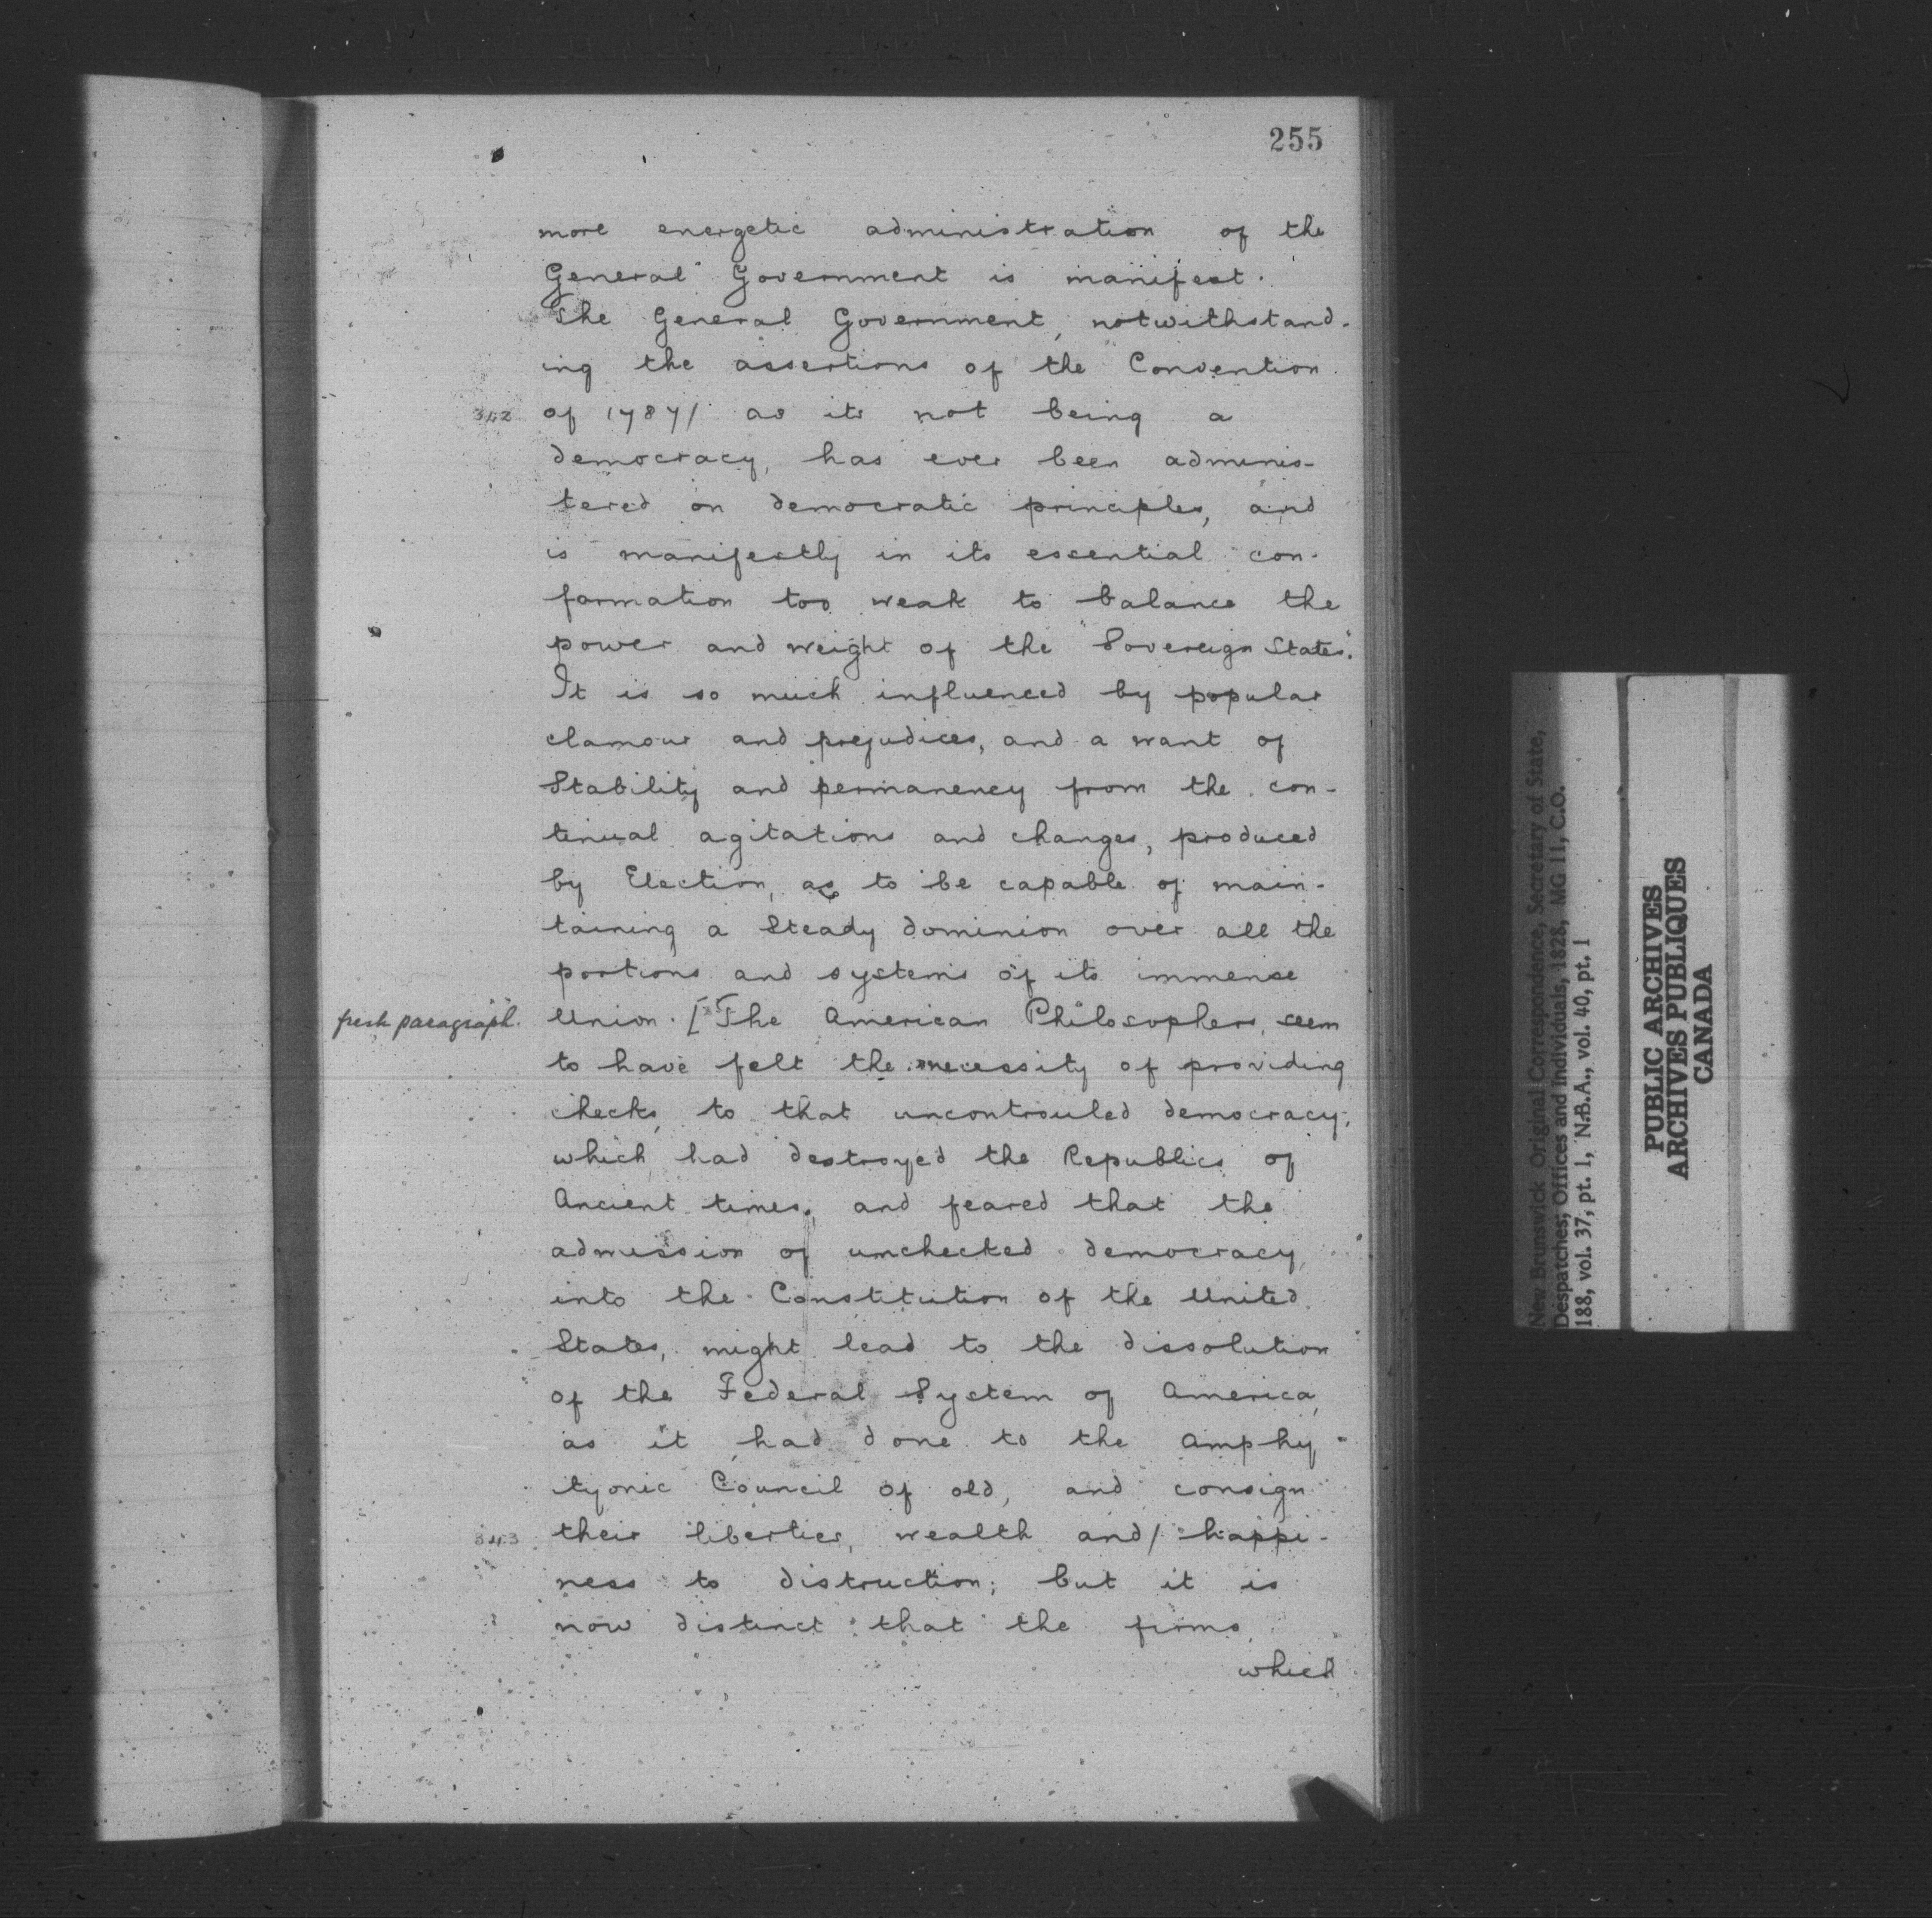 255
more energetic administration of the
General Government is manifest.
The General Government, notwithstand-
ing the assertions of the Convention
342 of 1787/ as its not being a
democracy, has ever been adminis-
tered on democratic principles, and
is manifestly in its essential con-
formation too weak to balance the
power and weight of the "Sovereign States".
It is so much influenced by popular
clamour and prejudices, and a want of
Stability and permanency from the con-
tinual agitations and changes, produced
by Election, as to be capable of main-
taining a Steady dominion over all the
portions and systems of its immense
fresh paragraph. Union. [The American Philosophers, seem
to have felt the necessity of providing
checks, to that uncontrouled democracy,
which had destroyed the Republics of
Ancient times, and feared that the
admission of unchecked democracy,
into the Constitution of the United
States, might lead to the dissolution
of the Federal System of America,
as it had done to the Amphy-
tyonic Council of old, and consign
343 their liberties, wealth and/ happi-
ness to distruction; but it is
now distinct that the firms
which
New Brunswick Original Correspondence, Secretary of State,
Despatches; Offices and Individuals, 1828, MG 11, C.O.
188, vol. 37, pt. 1, N.B.A., vol. 40, pt. 1
PUBLIC ARCHIVES
ARCHIVES PUBLIQUES
CANADA